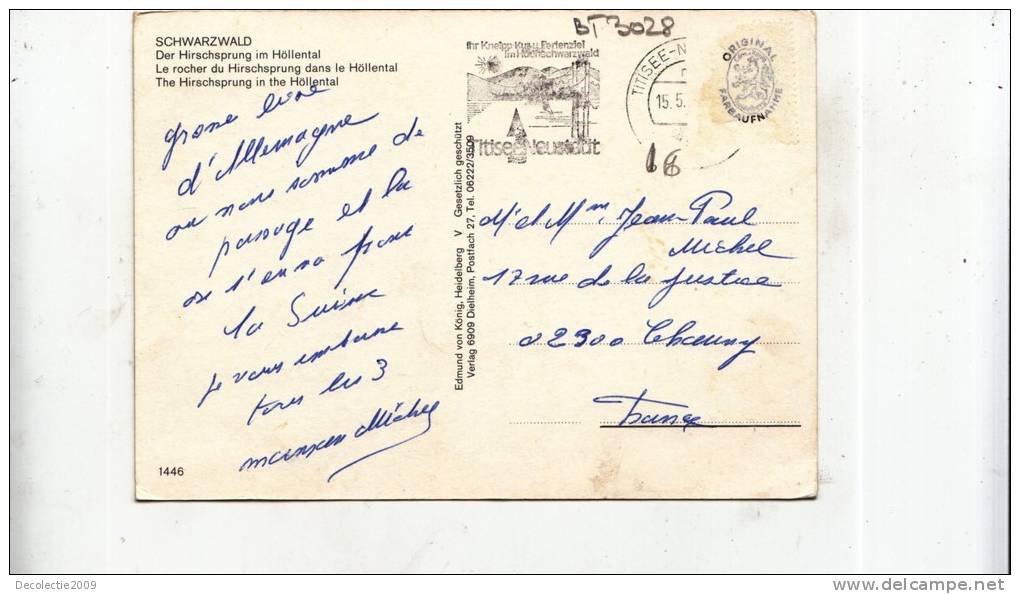 BT3028
SCHWARZWALD
Der Hirschsprung im Höllental
Le rocher du Hirschsprung dans le Höllental
The Hirschsprung in the Höllental
Ihr Kneipp-Kur-u. Ferienziel
im Hochschwarzwald
Titisee-Neustadt
TITISEE-N
15.5.
ORIGINAL
FARBAUFNAHME
16
grosse bise
d'Allemagne
ou nous somme de
passage et la
on s'en va
la Suisse
je vous embrasse
tous les 3
Michel
1446
Edmund von König, Heidelberg V Gesetzlich geschützt
Verlag 6909 Dielheim, Postfach 27, Tel. 06222/3509
M et Mme Jean-Paul
Michel
17 rue de la justice
02300 Chauny
France
Decolectie2009
http://www.delcampe.net